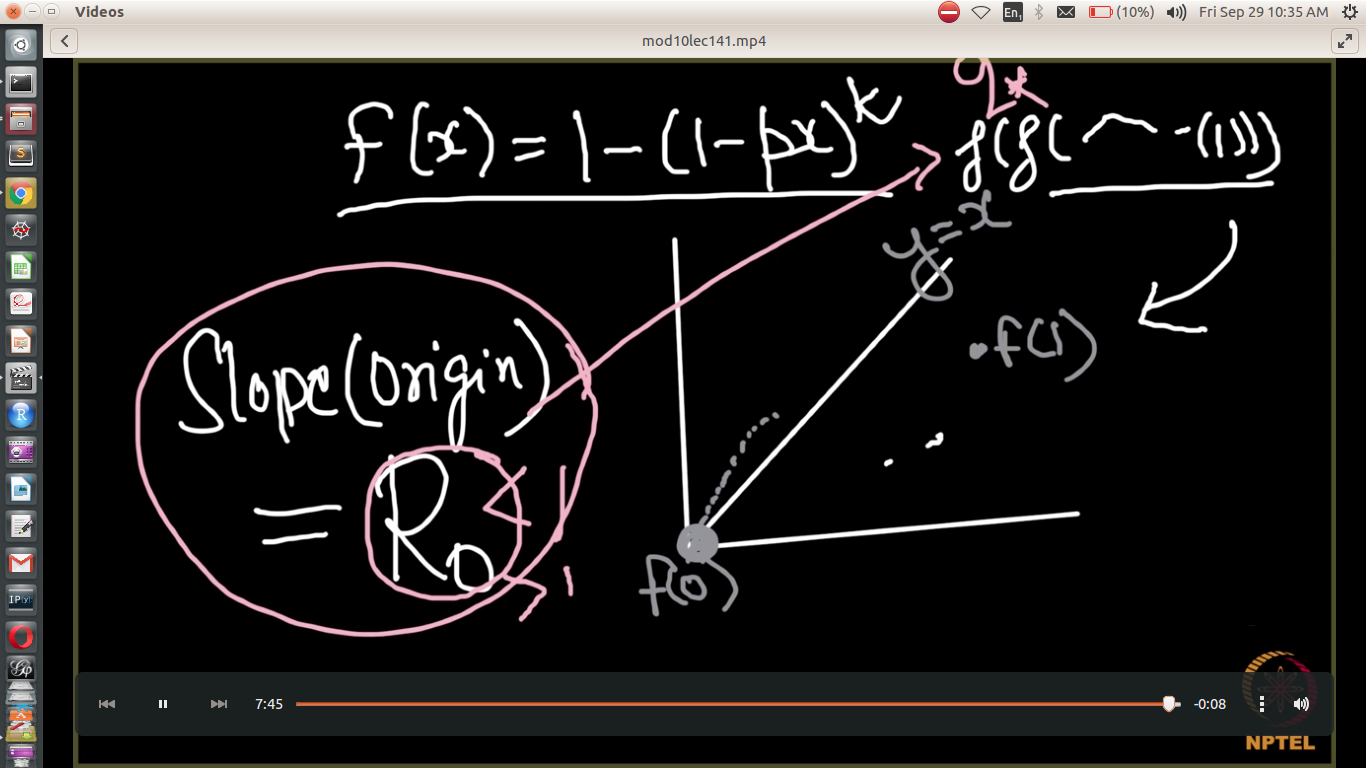 Videos
En1
(10%)
Fri Sep 29 10:35 AM
mod10lec141.mp4
q*
f(x) = 1 - (1 - px)^k
f(f( ⌒ - (1)))
y = x
f(1)
Slope(origin)
= R0
< 1
> 1
f(0)
7:45
-0:08
NPTEL